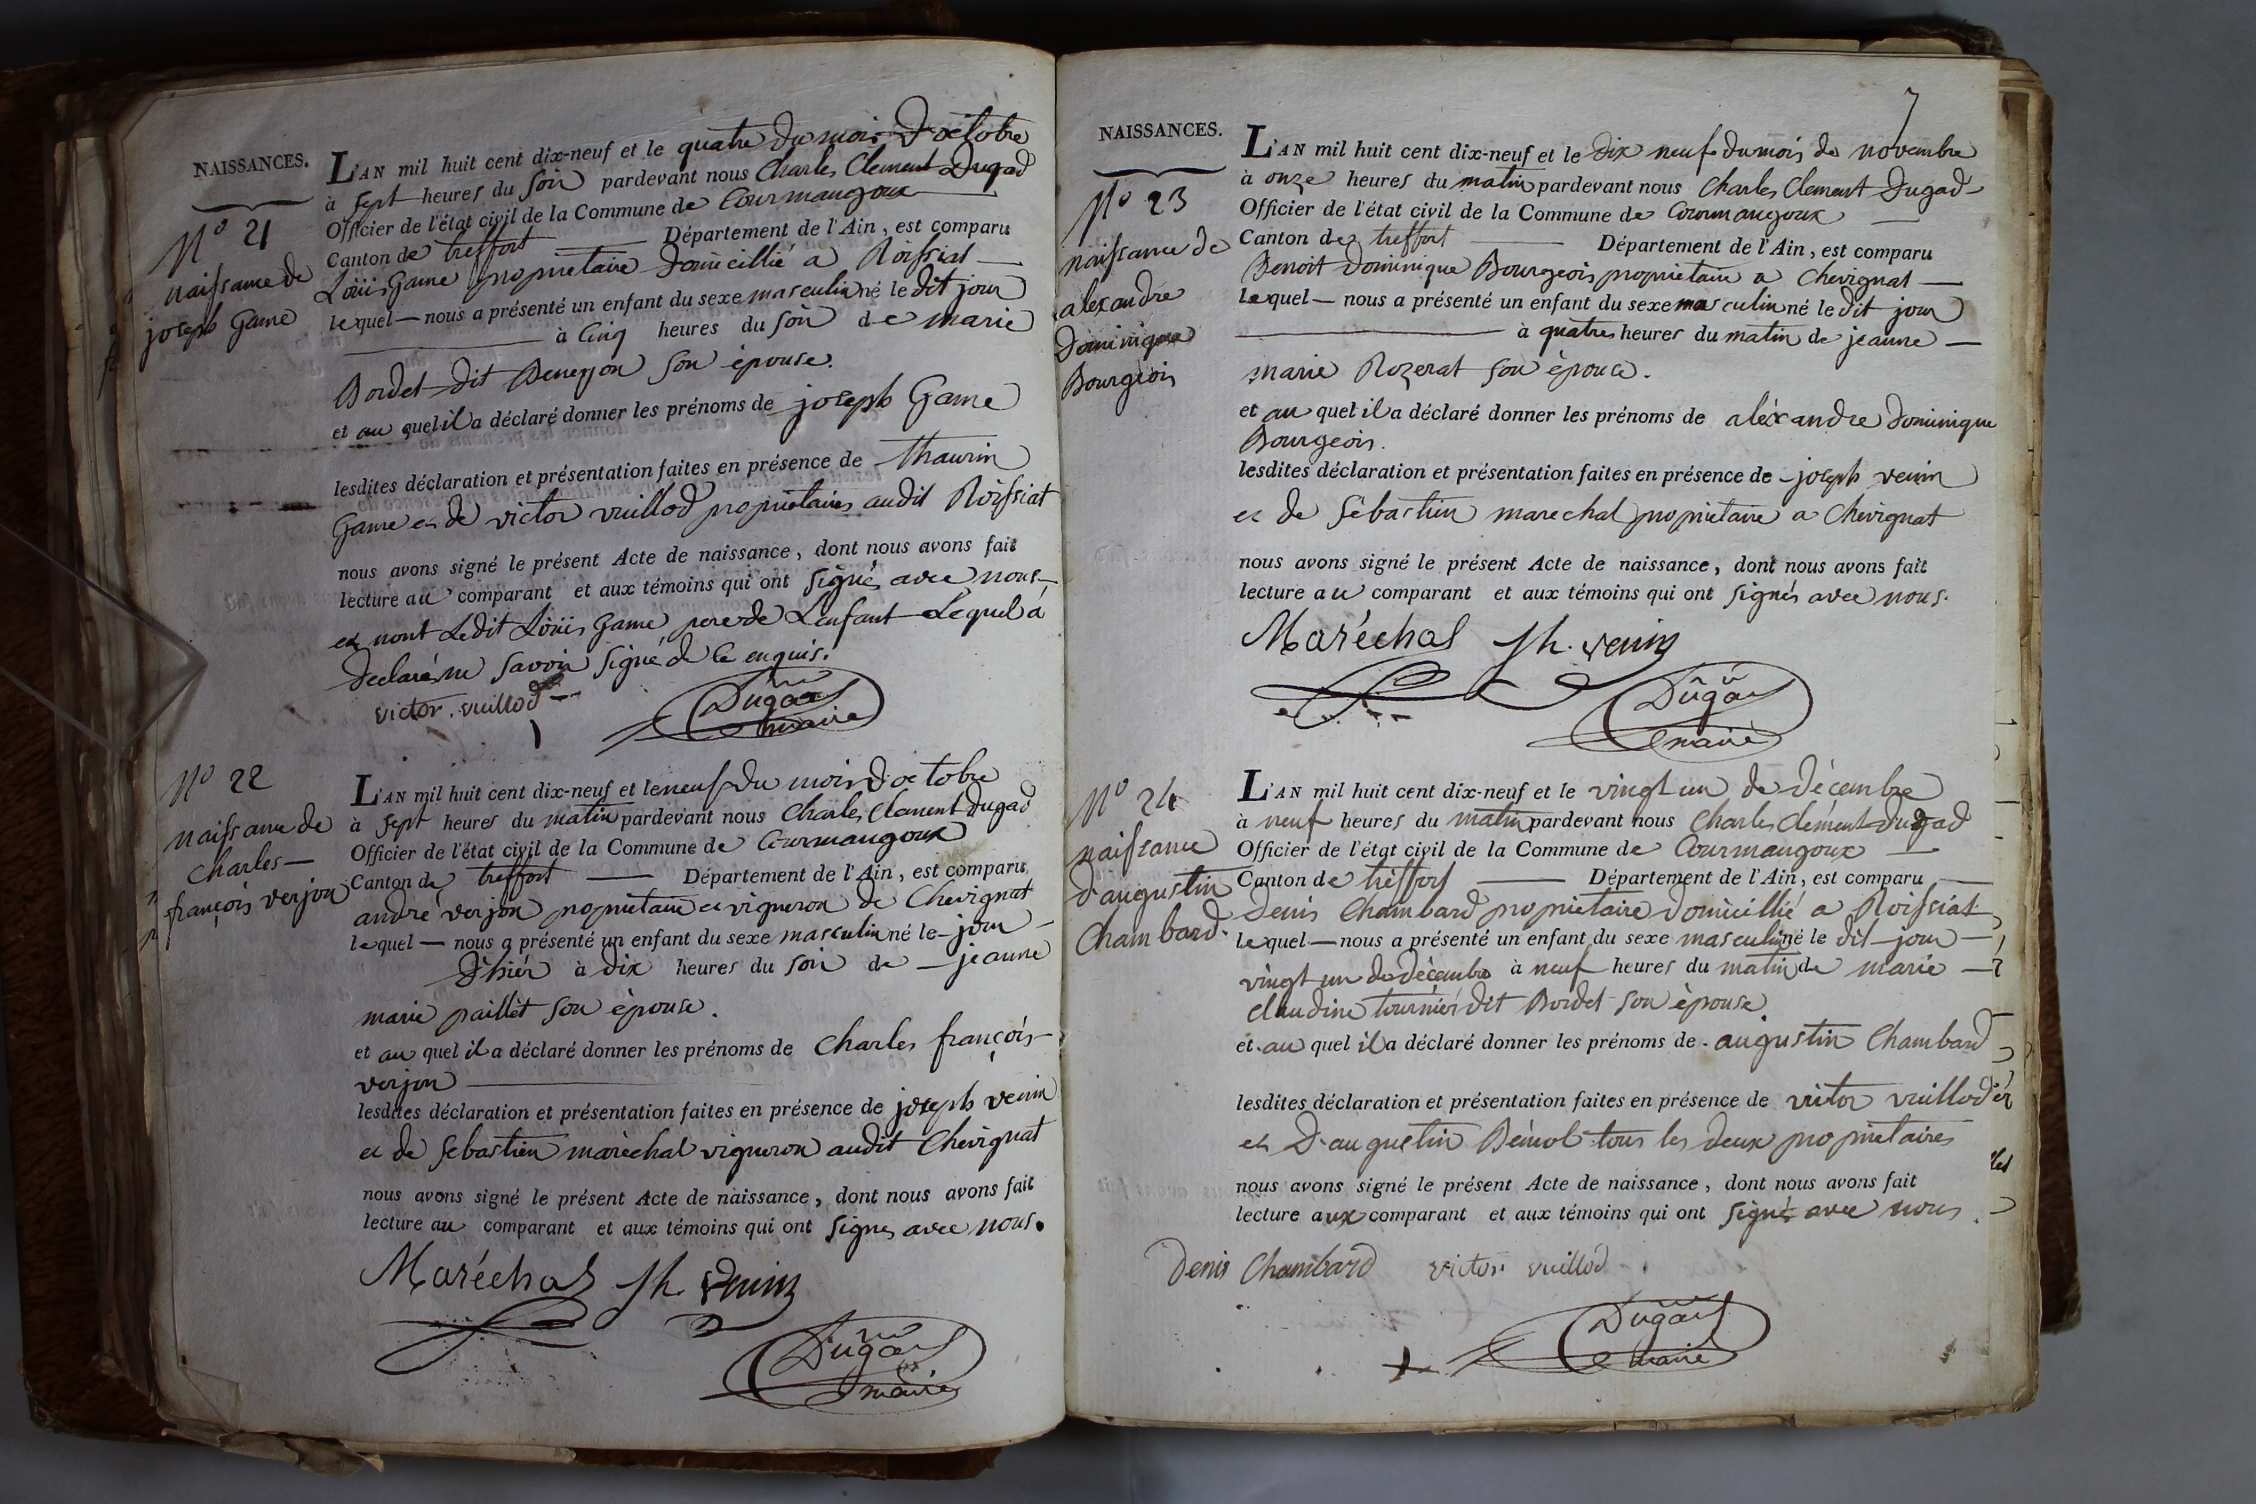 NAISSANCES.
N° 21
naissance de
joseph Game
L'AN mil huit cent dix-neuf et le quatre du mois d'octobre
à sept heures du soir pardevant nous Charles Clement Dugad
Officier de l'état civil de la Commune de Courmangoux
Canton de treffort Département de l'Ain, est comparu
Loüis Game propriétaire domicillié a Roissiat
lequel nous a présenté un enfant du sexe masculin né le dit jour
à cinq heures du soir de marie
Bordet dit son épouse.
et au quel il a déclaré donner les prénoms de joseph Game
lesdites déclaration et présentation faites en présence de Thaurin
Game et de victor vuillod propriétaires audit Roissiat
nous avons signé le présent Acte de naissance, dont nous avons fait
lecture au comparant et aux témoins qui ont signés avec nous
et nont Ledit Loüis Game pere de L'enfant Lequel a
declaré ne savoir signé de ce enquis.
victor vuillod
Dugad
maire
N° 22
naissance de
Charles
françois verjon
L'AN mil huit cent dix-neuf et le neuf du mois d'octobre
à sept heures du matin pardevant nous Charles Clement Dugad
Officier de l'état civil de la Commune de Courmangoux
Canton de treffort Département de l'Ain, est comparu
andré verjon propriétaire et vigneron de Chevignat
lequel nous a présenté un enfant du sexe masculin né le jour
d'hiér à dix heures du soir de jeanne
marie paillet son épouse.
et au quel il a déclaré donner les prénoms de Charles françois
verjon
lesdites déclaration et présentation faites en présence de joseph venin
et de sebastien maréchal vigneron audit Chevignat
nous avons signé le présent Acte de naissance, dont nous avons fait
lecture au comparant et aux témoins qui ont signés avec nous.
Maréchal Jh. venin
Dugad
maire
7
NAISSANCES.
N° 23
naissance de
alexandre
Dominique
Bourgeois
L'AN mil huit cent dix-neuf et le dix neuf du mois de novembre
à onze heures du matin pardevant nous Charles Clement Dugad
Officier de l'état civil de la Commune de Courmangoux
Canton de treffort Département de l'Ain, est comparu
Benoit Dominique Bourgeois propriétaire a Chevignat
lequel nous a présenté un enfant du sexe masculin né le dit jour
à quatre heures du matin de jeanne
marie Rozerat son épouse.
et au quel il a déclaré donner les prénoms de aléxandre Dominique
Bourgeois.
lesdites déclaration et présentation faites en présence de joseph venin
et de Sébastien marechal propriétaire a Chevignat
nous avons signé le présent Acte de naissance, dont nous avons fait
lecture au comparant et aux témoins qui ont signés avec nous.
Maréchal Jh. venin
Dugad
maire
N° 24
naissance
d'augustin
Chambard.
L'AN mil huit cent dix-neuf et le vingt un de décembre
à neuf heures du matin pardevant nous Charles Clément Dugad
Officier de l'état civil de la Commune de Courmangoux
Canton de tréffort Département de l'Ain, est comparu
Denis Chambard propriétaire domicillié a Roissiat
lequel nous a présenté un enfant du sexe masculin né le dit jour
vingt un de décembre à neuf heures du matin de marie
claudine tournier dit Bordet son épouse
et au quel il a déclaré donner les prénoms de augustin Chambard
lesdites déclaration et présentation faites en présence de victor vuillod
et D'augustin tous les deux propriétaires
nous avons signé le présent Acte de naissance, dont nous avons fait
lecture aux comparant et aux témoins qui ont signés avec nous.
Denis Chambard victor vuillod
Dugad
maire